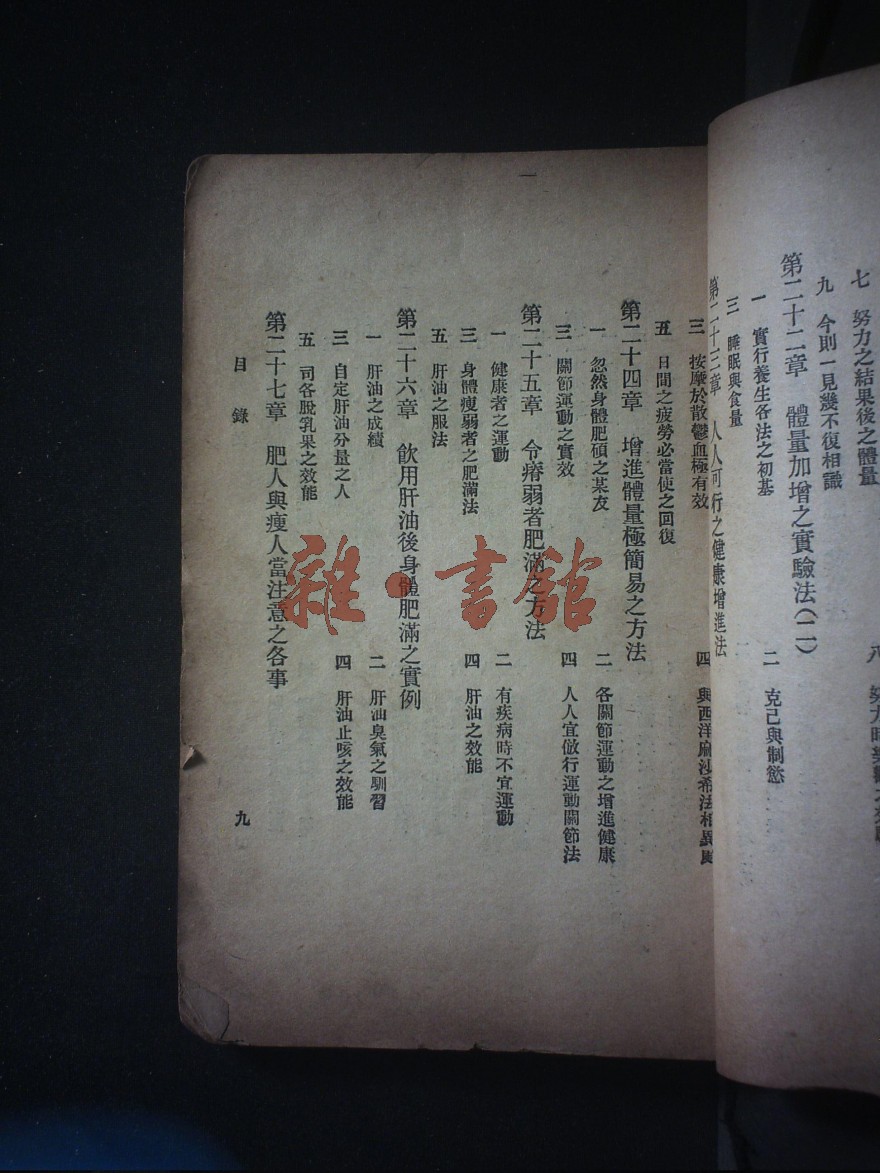 七　努力之結果後之體量
九　今則一見幾不復相識
第二十二章　體量加增之實驗法(二)
一　實行養生各法之初基
二　克己與制慾
三　睡眠與食量
第二十三章　人人可行之健康增進法
三　按摩於散鬱血極有效
四　與西洋麻沙希法相異
五　日間之疲勞必當使之回復
第二十四章　增進體量極簡易之方法
一　忽然身體肥碩之某友
二　各關節運動之增進健康
三　關節運動之實效
四　人人宜倣行運動關節法
第二十五章　令瘠弱者肥滿之方法
一　健康者之運動
二　有疾病時不宜運動
三　身體瘦弱者之肥滿法
四　肝油之效能
五　肝油之服法
第二十六章　飲用肝油後身體肥滿之實例
一　肝油之成績
二　肝油臭氣之馴習
三　自定肝油分量之人
四　肝油止咳之效能
五　司各脫乳果之效能
第二十七章　肥人與瘦人當注意之各事
目錄
九
雜·書館